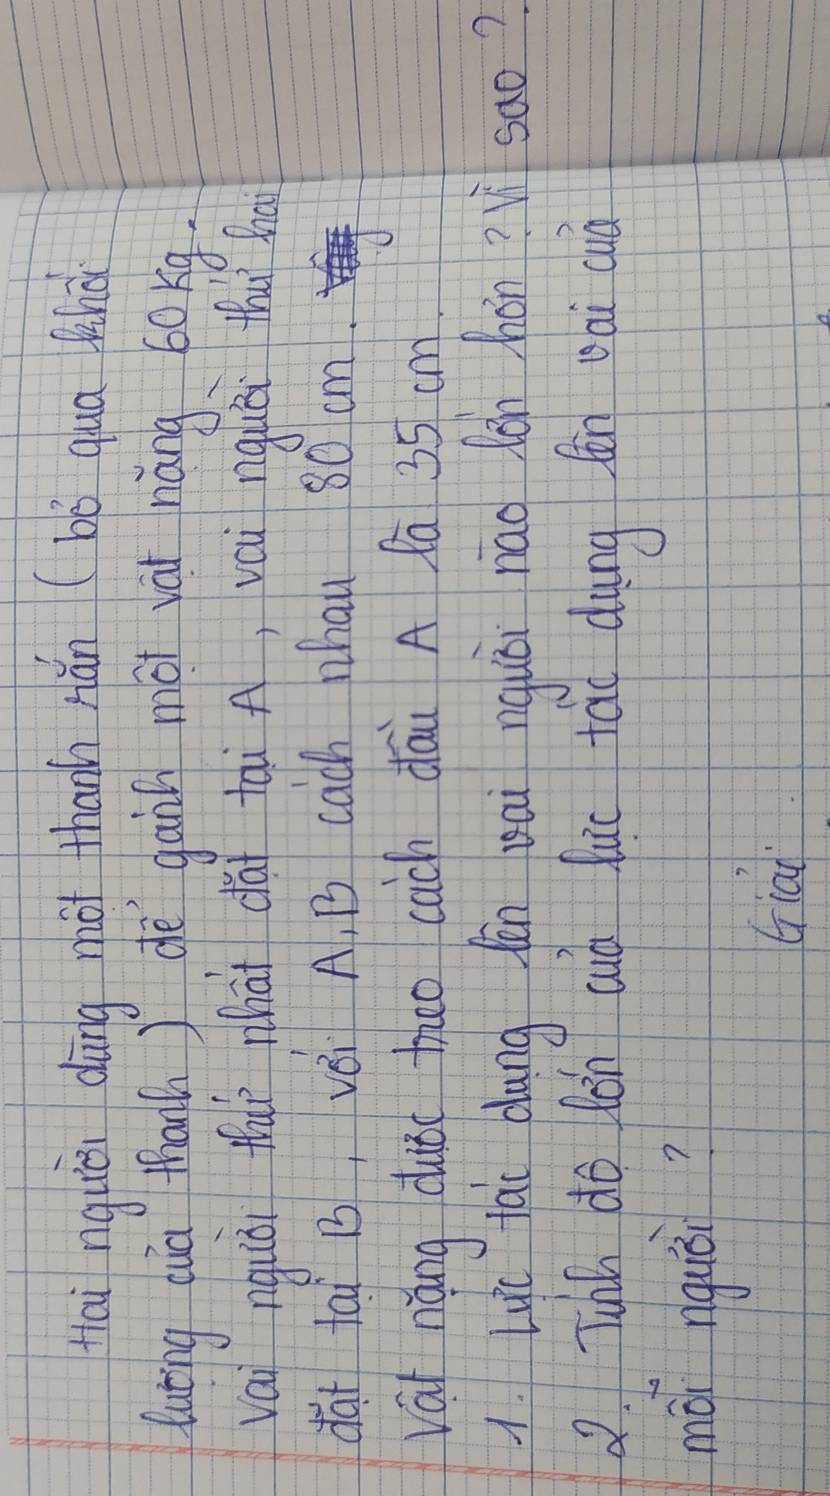 Hai người dùng một thanh rắn (bỏ qua khối
lượng của thanh) để gánh một vật nặng 60 kg.
Vai người thứ nhất đặt tại A, vai người thứ hai
đặt tại B, với A,B cách nhau 80 cm.
Vật nặng được treo cách đầu A là 35 cm.
1. Lực tác dụng lên vai người nào lớn hơn? Vì sao?
2. Tính độ lớn của lực tác dụng lên vai của
mỗi người?
Giải